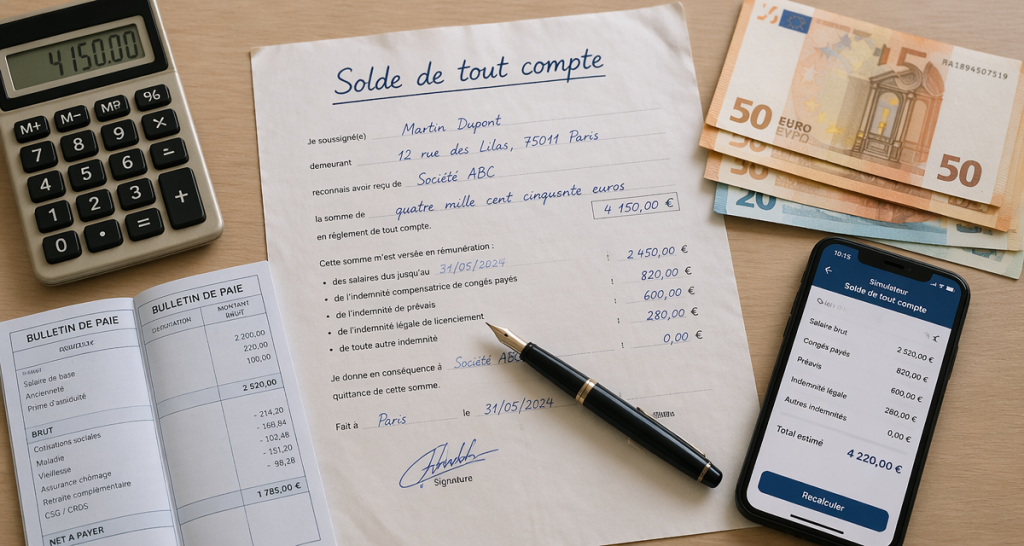 4150.00
M+
M-
MR
%
7
8
9
×
4
5
6
1
2
3
+
0
•
=
Solde de tout compte
Je soussigné(e) Martin Dupont
demeurant 12 rue des Lilas, 75011 Paris
reconnais avoir reçu de Société ABC
la somme de quatre mille cent cinqusnte euros
4 150,00 €
en règlement de tout compte.
Cette somme m'est versée en rémunération :
• des salaires dus jusqu'au 31/05/2024 : 2 450,00 €
• de l'indemnité compensatrice de congés payés 820,00 €
• de l'indemnité de prévais : 600,00 €
• de l'indemnité légale de licenciement : 280,00 €
• de toute autre indemnité : 0,00 €
Je donne en conséquence à Société ABC
quittance de cette somme.
Fait à Paris le 31/05/2024
Signature
BULLETIN DE PAIE
Salaire de base
Ancienneté
Prime d'assiduité
BRUT
Cotisations sociales
Maladie
Vieillesse
Assurance chômage
Retraite complémentaire
CSG / CRDS
NET A PAYER
BULLETIN DE PAIE
MONTANT
2 200,00
220,00
100,00
2 520,00
- 214,20
- 168,84
- 102,48
- 151,20
- 98,28
1 785,00 €
MA1894507519
50 EURO
50
20
10:15
Simulateur
Solde de tout compte
Salaire brut 2 520,00 €
Congés payés 820,00 €
Préavis 600,00 €
Indemnité légale 280,00 €
Autres indemnités 0,00 €
Total estimé 4 220,00 €
Recalculer